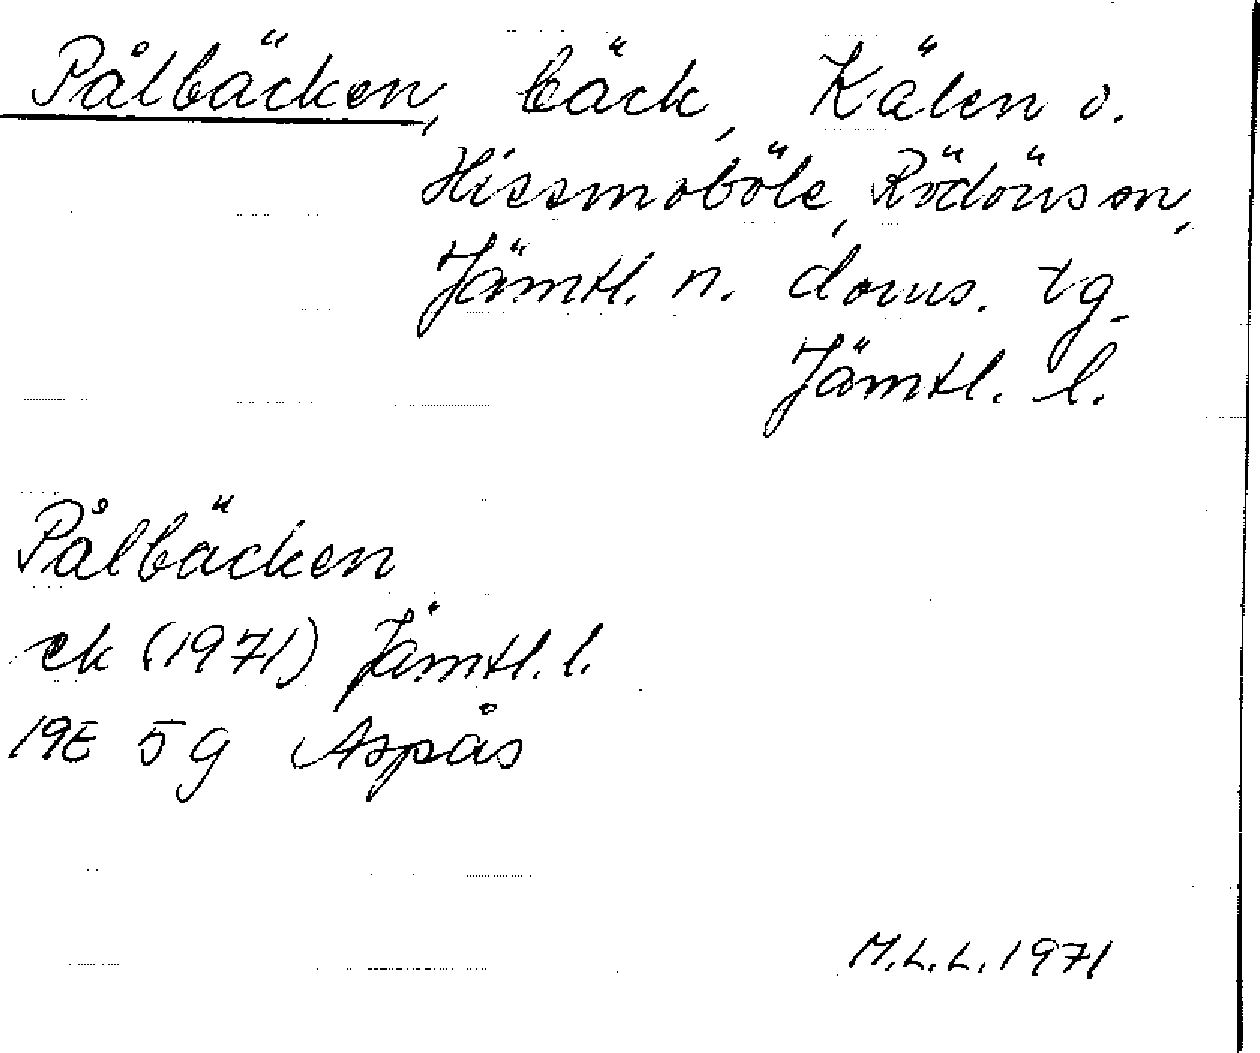 Pålbäcken, bäck, Kälen o.
Hissmoböle, Rödöns sn,
Jämtl. n. doms. tg
Jämtl. l.
Pålbäcken
ek (1971) Jämtl. l.
19E 5g Aspås
M.L.L. 1971